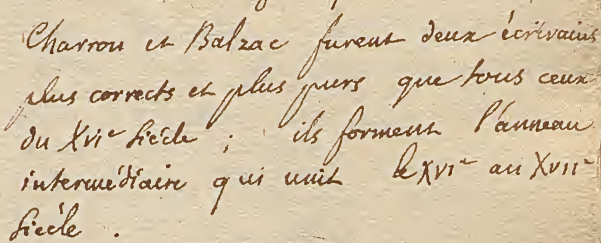 Charron et Balzac furent deux écrivains
plus corrects et plus purs que tous ceux
du XVIe siècle ; ils forment l'anneau
intermédiaire qui unit le XVIe au XVIIe
siècle .